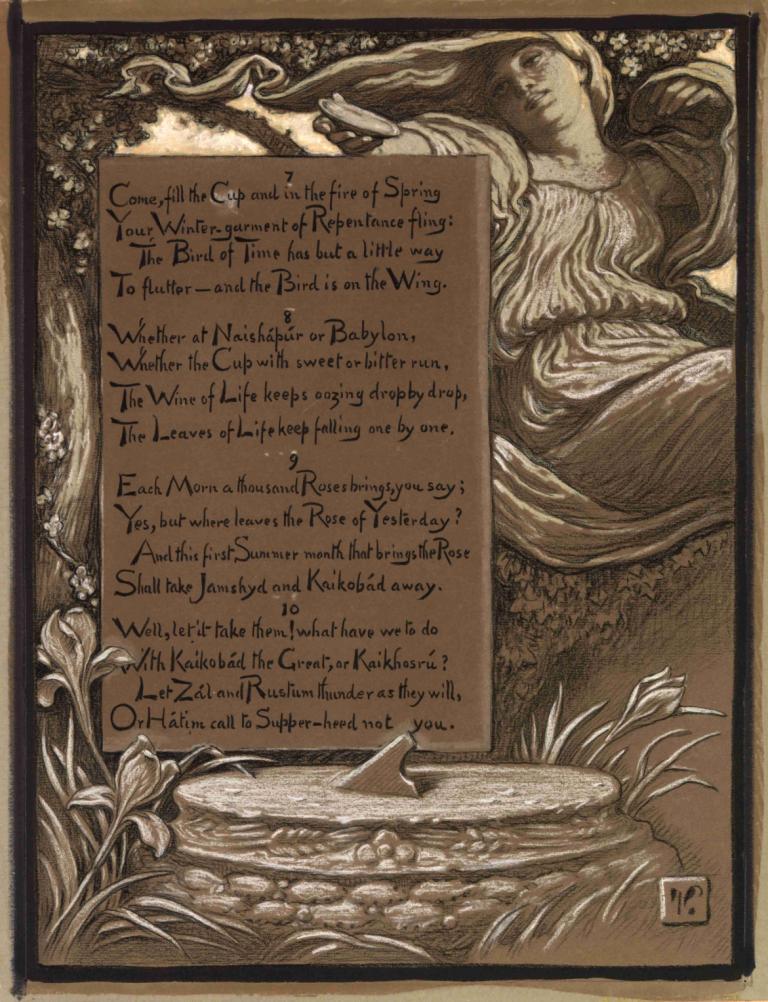 7
Come, fill the Cup and in the fire of Spring
Your Winter-garment of Repentance fling:
The Bird of Time has but a little way
To flutter — and the Bird is on the Wing.
8
Whether at Naishápúr or Babylon,
Whether the Cup with sweet or bitter run,
The Wine of Life keeps oozing drop by drop,
The Leaves of Life keep falling one by one.
9
Each Morn a thousand Roses brings, you say;
Yes, but where leaves the Rose of Yesterday?
And this first Summer month that brings the Rose
Shall take Jamshyd and Kaikobád away.
10
Well, let it take them! what have we to do
With Kaikobád the Great, or Kaikhosrú?
Let Zál and Rustum thunder as they will,
Or Hátim call to Supper-heed not you.